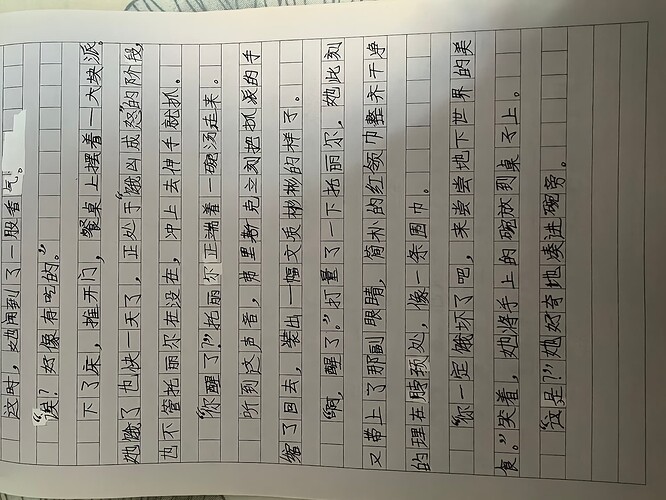 这时，她闻到了一股香气。
“诶？好像有吃的。”
下了床，推开门，餐桌上摆着一大块派。
她饿了也快一天了，正处于“饿凶成怒”的阶段，
也不管托丽尔在没在，冲上去伸手就抓。
“你醒了？”托丽尔正端着一碗汤走来。
听到这声音，弗里斯克立刻把抓派的手
缩了回去，装出一幅文质彬彬的样子。
“啊，醒了。”打量了一下托丽尔，她此刻
又带上了那副眼睛，简朴的红领巾整齐干净
的理在脖颈处，像一条围巾。
“你一定饿坏了吧，来尝尝地下世界的美
食。”笑着，她将手上的碗放到桌子上。
“这是？”她好奇地凑进碗旁。